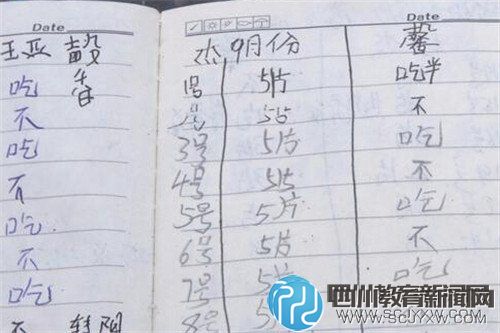 Date
王亚馨
吃
不
吃
不
吃
不
吃
不
Date
杰,9月份 馨
1号 5片 吃半
2号 5片 不
3号 5片 吃
4号 5片 不
5号 5片 吃
6号 5片 不
7号 5片 吃
8号
四川教育新闻网
WWW.SCJYXW.COM